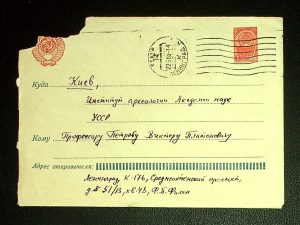 Куда Киев,
Институт археологии Академии наук
УССР
Кому Профессору Петрову Виктору Платоновичу
Адрес отправителя:
Ленинград К-176, Среднеохтенский проспект,
д. № 51/13, кв. 43, Ф. П. Филин